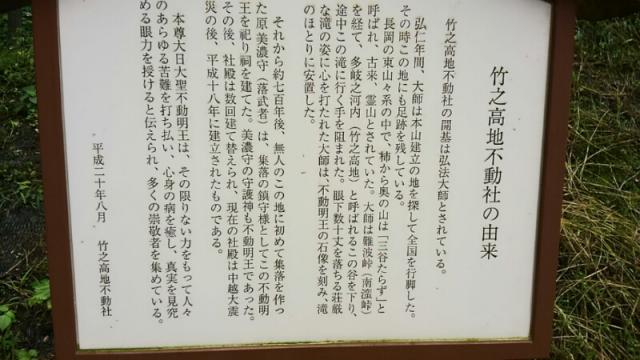 竹之高地不動社の由来
竹之高地不動社の開基は弘法大師とされている。
弘仁年間、大師は本山建立の地を探して全国を行脚した。
その時この地にも足跡を残している。
長岡の東山々系の中で、柿から奥の山は「三谷たらず」と
呼ばれ、古来、霊山とされていた。大師は難波峠(南蛮峠)
を経て、多岐之河内(竹之高地)と呼ばれるこの谷を下り、
途中この滝に行く手を阻まれた。眼下数十丈を落ちる荘厳
な滝の姿に心を打たれた大師は、不動明王の石像を刻み、滝
のほとりに安置した。
それから約七百年後、無人のこの地に初めて集落を作っ
た原美濃守(落武者)は、集落の鎮守様としてこの不動明
王を祀り祠を建てた。美濃守の守護神も不動明王であった。
その後、社殿は数回建て替えられ、現在の社殿は中越大震
災の後、平成十八年に建立されたものである。
本尊大日大聖不動明王は、その限りない力をもって人々
のあらゆる苦難を打ち払い、心身の病を癒し、真実を見究
める眼力を授けると伝えられ、多くの崇敬者を集めている。
平成二十年八月 竹之高地不動社